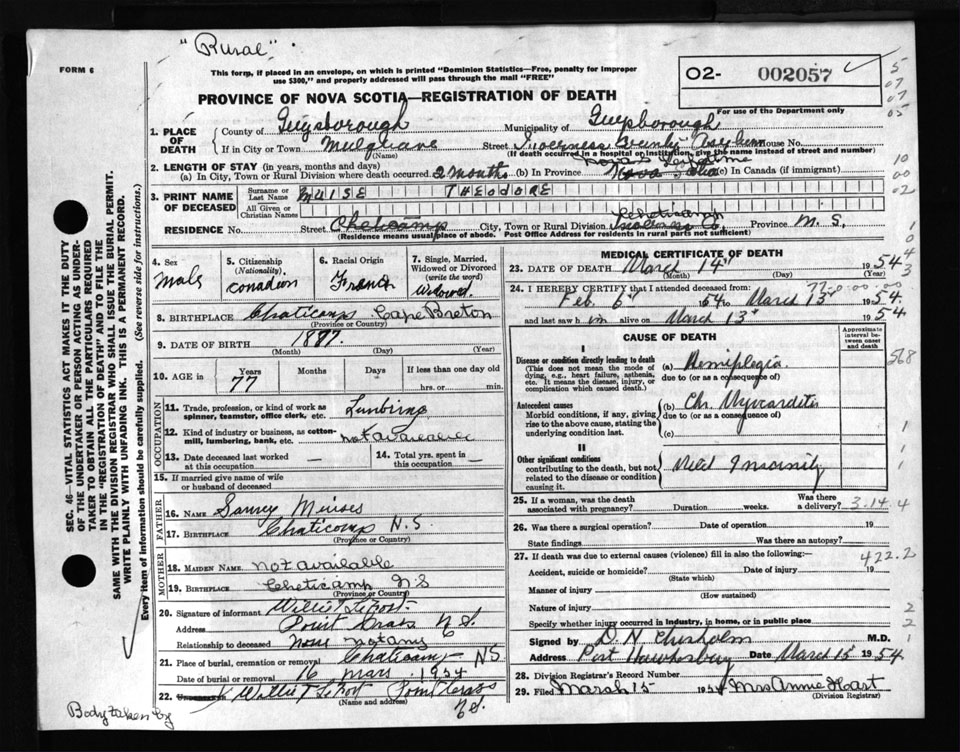 "Rural"
FORM 6
This form, if placed in an envelope, on which is printed "Dominion Statistics—Free, penalty for improper
use $300," and properly addressed will pass through the mail "FREE"
PROVINCE OF NOVA SCOTIA—REGISTRATION OF DEATH
O2- 002057
For use of the Department only
5
07
07
05
10
00
02
1. PLACE OF DEATH
County of Guysborough Municipality of Guysborough
If in City or Town Mulgrave Street Inverness County Asylum House No.
(Name) (If death occurred in a hospital or institution, give the name instead of street and number)
2. LENGTH OF STAY (in years, months and days)
(a) In City, Town or Rural Division where death occurred. 2 months (b) In Province Nova Scotia (c) In Canada (if immigrant)
3. PRINT NAME OF DECEASED
Surname or Last Name MUISE THEODORE
All Given or Christian Names
RESIDENCE No. Street Chetcamp City, Town or Rural Division Cheticamp Inverness Co. Province N. S,
(Residence means usual place of abode. Post Office Address for residents in rural parts not sufficient)
SEC. 46—VITAL STATISTICS ACT MAKES IT THE DUTY
OF THE UNDERTAKER OR PERSON ACTING AS UNDER-
TAKER TO OBTAIN ALL THE PARTICULARS REQUIRED
IN THE "REGISTRATION OF DEATH" AND TO FILE THE
SAME WITH THE DIVISION REGISTRAR WHO SHALL ISSUE THE BURIAL PERMIT.
WRITE PLAINLY WITH UNFADING INK. THIS IS A PERMANENT RECORD.
Every item of information should be carefully supplied. (See reverse side for instructions.)
4. Sex
male
5. Citizenship
(Nationality)
Canadian
6. Racial Origin
French
7. Single, Married,
Widowed or Divorced
(write the word)
Widowed
8. BIRTHPLACE Chaticamp Cape Breton
(Province or Country)
9. DATE OF BIRTH 1877.
(Month) (Day) (Year)
10. AGE in Years Months Days If less than one day old
77 hrs. or min.
OCCUPATION
11. Trade, profession, or kind of work as
spinner, teamster, office clerk, etc. Lumbering
12. Kind of industry or business, as cotton-
mill, lumbering, bank, etc. not available
13. Date deceased last worked
at this occupation —
14. Total yrs. spent in
this occupation —
15. If married give name of wife
or husband of deceased
FATHER
16. NAME Muises
17. BIRTHPLACE Chaticamp N.S.
(Province or Country)
MOTHER
18. MAIDEN NAME not available
19. BIRTHPLACE Cheticamp N.S
(Province or Country)
20. Signature of informant Willie
Address Point Cross N S.
Relationship to deceased None not any
21. Place of burial, cremation or removal Chaticamp NS
Date of burial or removal 16 mars 1954
22. Willie Point Cross
(Name and address)
N S.
Body taken by
MEDICAL CERTIFICATE OF DEATH
23. DATE OF DEATH March 14th 1954
(Month) (Day) (Year)
24. I HEREBY CERTIFY that I attended deceased from: 77-0-00-00
Feb 6th 1954 to March 13th 1954.
and last saw him alive on March 13th 1954
CAUSE OF DEATH
Approximate
interval between
onset
and death
I
Disease or condition directly leading to death
(This does not mean the mode of
dying, e.g., heart failure, asthenia,
etc. It means the disease, injury, or
complication which caused death.)
(a) Hemiplegia.
due to (or as a consequence of)
Antecedent causes
Morbid conditions, if any, giving
rise to the above cause, stating the
underlying condition last.
(b) Ch. Myocarditis
due to (or as a consequence of)
(c)
II
Other significant conditions
contributing to the death, but not
related to the disease or condition
causing it.
Mild Insanity
25. If a woman, was the death
associated with pregnancy? Duration weeks. Was there
a delivery? 3.14.4
26. Was there a surgical operation? Date of operation 19
State findings Was there an autopsy?
27. If death was due to external causes (violence) fill in also the following:— 422.2
Accident, suicide or homicide? Date of injury 19
(State which)
Manner of injury
(How sustained)
Nature of injury
Specify whether injury occurred in industry, in home, or in public place
Signed by D. N Chisholm M.D.
Address Port Hawkesbury Date March 15 1954
28. Division Registrar's Record Number
29. Filed March 15 1954 Mrs Annie Hart
(Division Registrar)